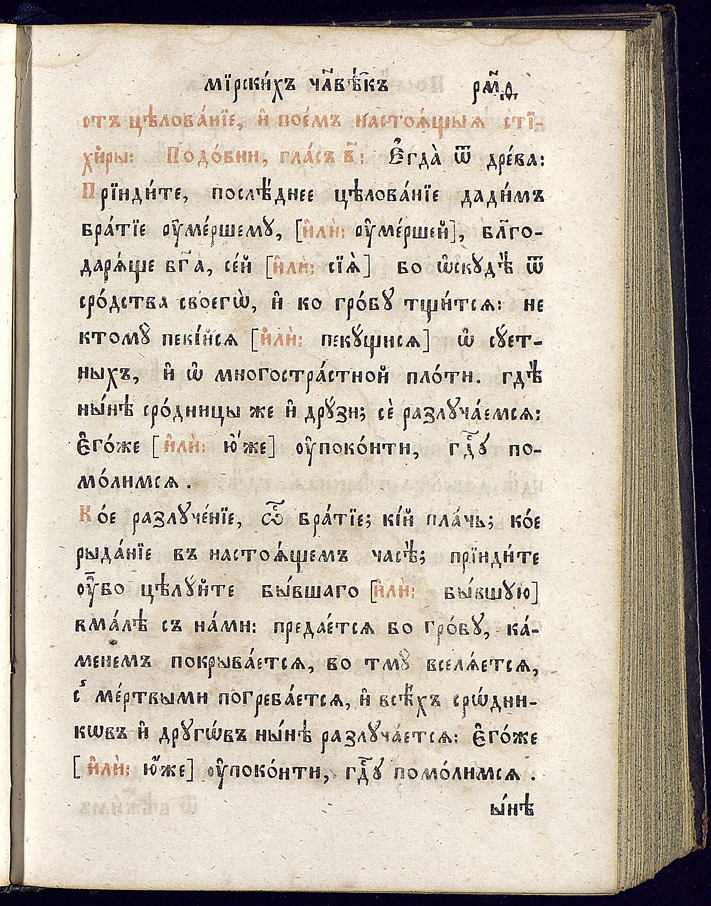 мїрски́хъ чл҃вѣ̑къ рм҃д
отъ цѣлова́нїе, и҆ пое́мъ настоѧ́щыѧ стї-
хи̑ры: Подо́бни, гла́съ в҃: Є҆гда̀ ѿ дре́ва:
Прїиди́те, послѣ́днее цѣлова́нїе дади́мъ
бра́тїе ᲂу҆ме́ршему, [и҆лѝ: ᲂу҆ме́ршей], бл҃го-
дарѧ́ще бг҃а, се́й [и҆лѝ: сїѧ̀] бо ѡ҆скудѣ̀ ѿ
сро́дства своегѡ̀, и҆ ко гро́бꙋ тщи́тсѧ: не
ктомꙋ̀ пекі́йсѧ [и҆лѝ: пеку́щисѧ] ѡ҆ сует-
ныхъ, и҆ ѡ҆ многостра́стной пло́ти. гдѣ̀
ны́нѣ сро́дницы же и҆ друзи; сѐ разлуча́емсѧ:
Є҆го́же [и҆лѝ: ю҆́же] ᲂу҆поко́ити, гдⷭ҇у по-
мо́лимсѧ.
Ко́е разлуче́нїе, ѽ бра́тїе; кі́й пла́чь; ко́е
рыда́нїе въ настоѧ́щемъ часѣ̀; прїиди́те
ᲂу҆̀бо цѣлу́йте бы́вшаго [и҆лѝ: бы́вшую]
вма́лѣ съ на́ми: предае́тсѧ бо гро́бꙋ, ка́-
менемъ покрыва́етсѧ, во тмꙋ̀ вселѧ́етсѧ,
с̾ ме́ртвыми погреба́етсѧ, и҆ всѣ́хъ срѡ́дни-
кѡвъ и҆ другѡ́въ ны́нѣ разлуча́етсѧ: Є҆го́же
[и҆лѝ: ю҆́же] ᲂу҆поко́ити, гдⷭ҇у помо́лимсѧ.
ы́нѣ